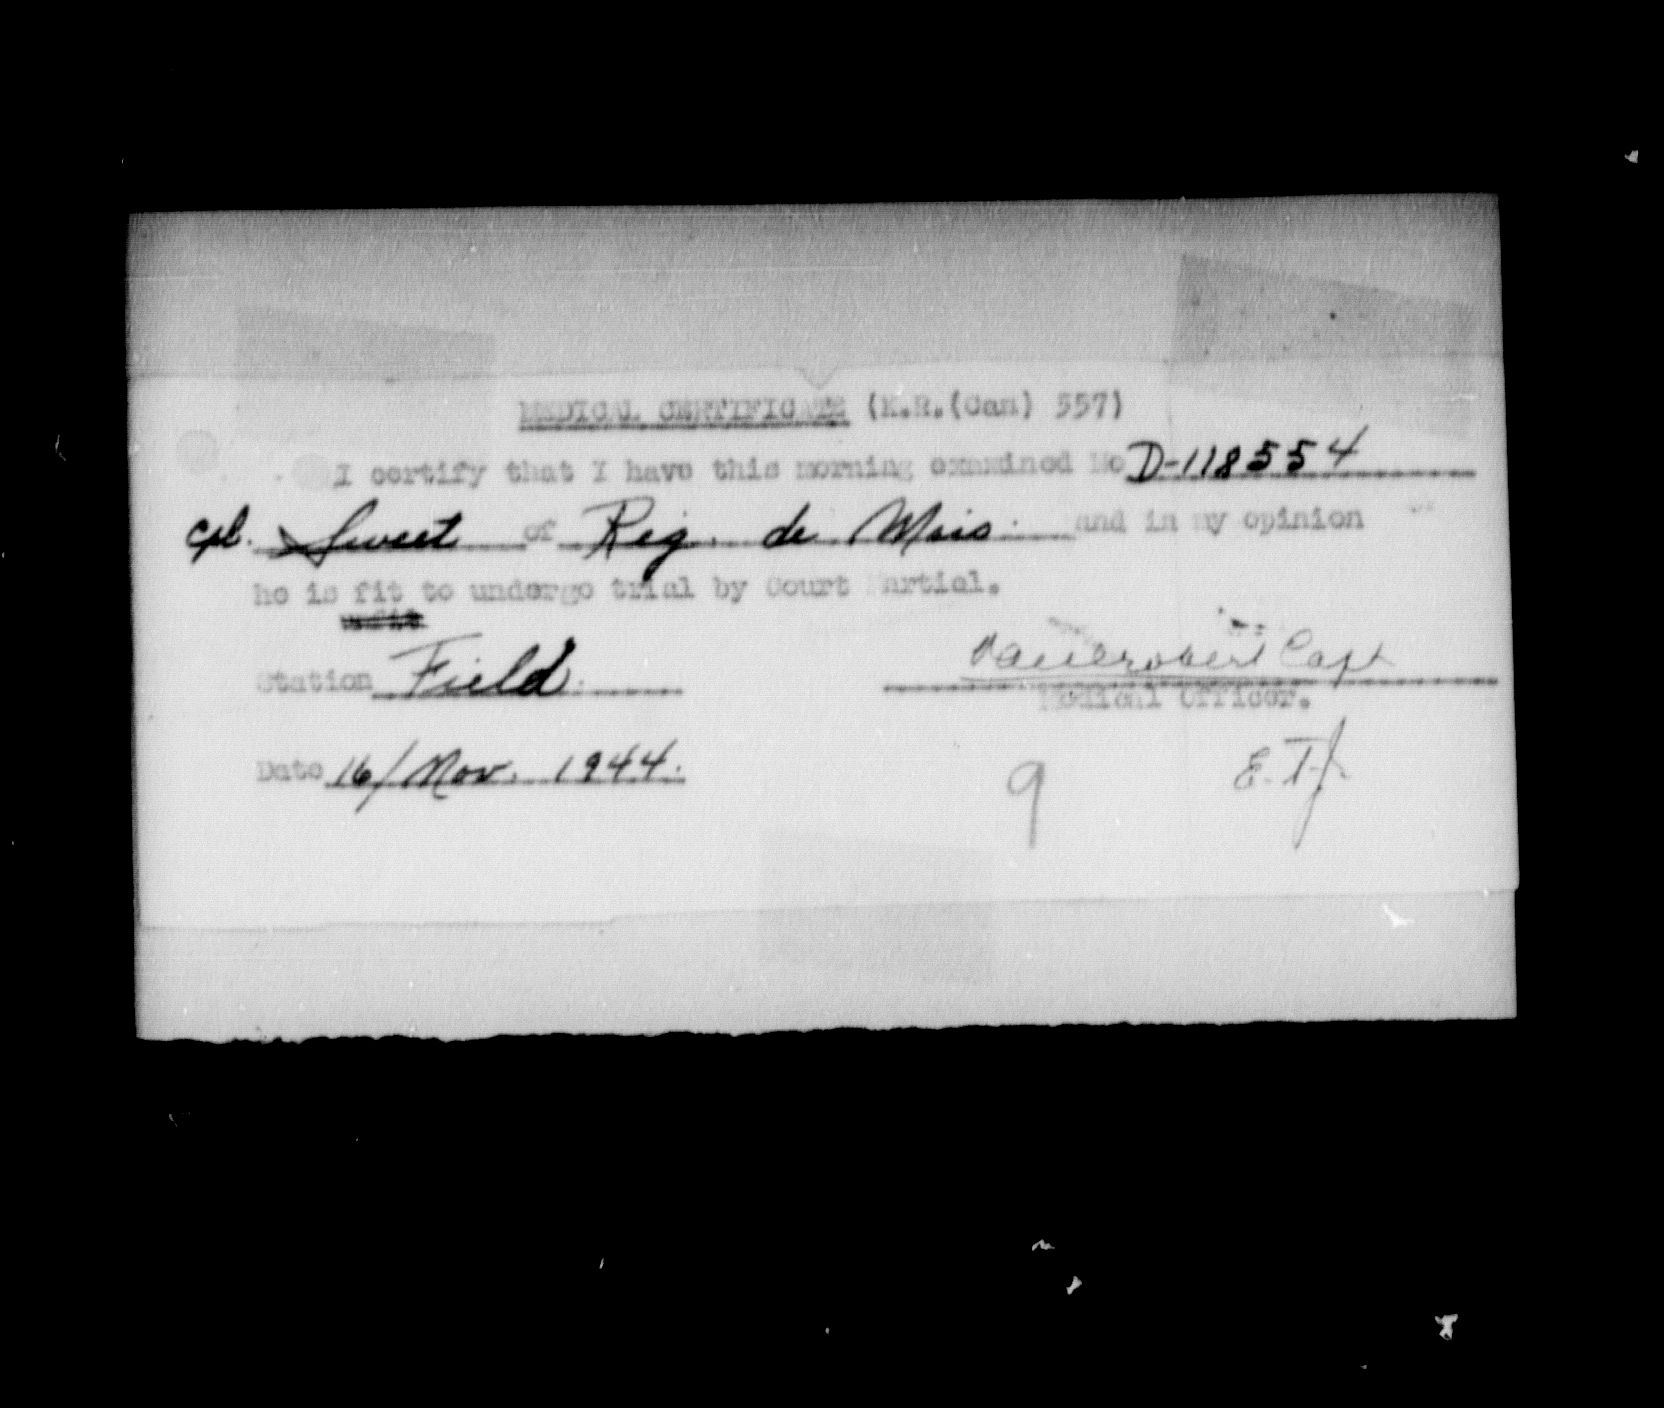 MEDICAL CERTIFICATE (K.R.(Can) 557)
I certify that I have this morning examined No D-118554
Cpl. Sweet of Reg. de Mais. and in my opinion
he is fit to undergo trial by Court Martial.
unfit
Station Field.
Capt
Medical Officer.
Date 16/Nov. 1944.
9